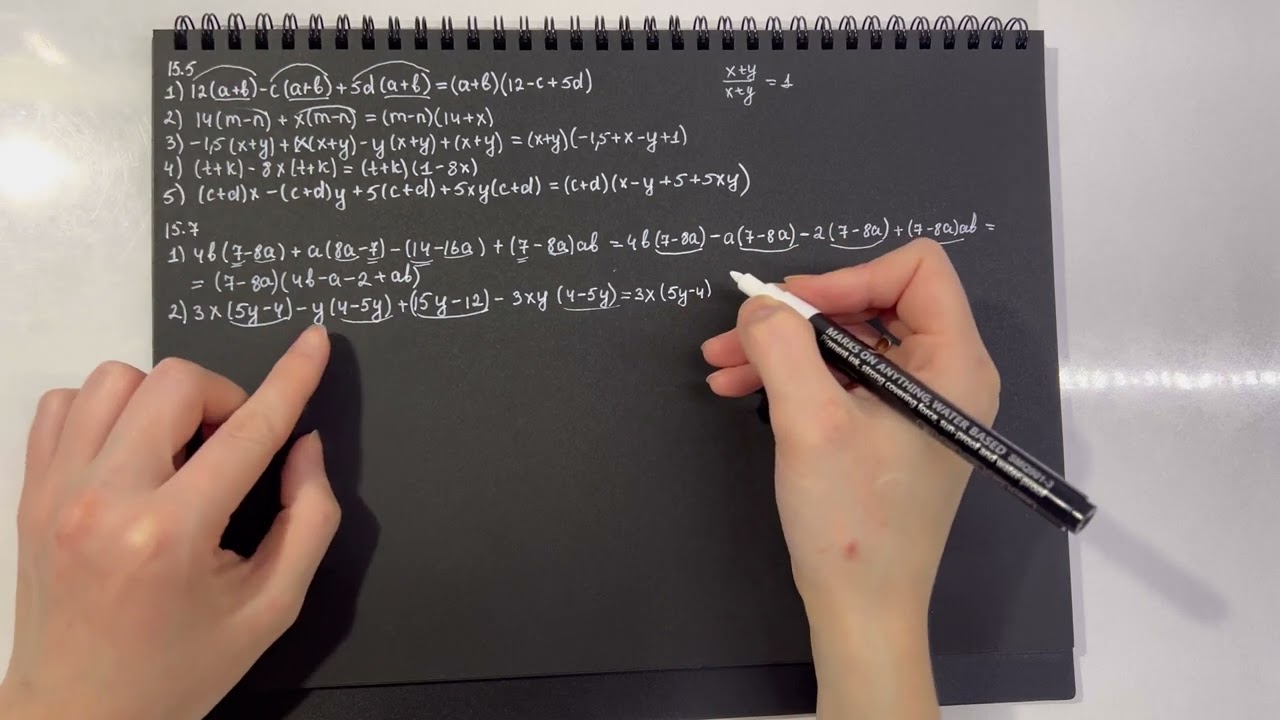 15.5
1) 12(a+b)-c(a+b)+5d(a+b)=(a+b)(12-c+5d)
x+y
x+y
=1
2) 14(m-n)+x(m-n)=(m-n)(14+x)
3) -1,5(x+y)+x(x+y)-y(x+y)+(x+y)=(x+y)(-1,5+x-y+1)
4) (t+k)-8x(t+k)=(t+k)(1-8x)
5) (c+d)x-(c+d)y+5(c+d)+5xy(c+d)=(c+d)(x-y+5+5xy)
15.7
1) 4b(7-8a)+a(8a-7)-(14-16a)+(7-8a)ab=4b(7-8a)-a(7-8a)-2(7-8a)+(7-8a)ab=
=(7-8a)(4b-a-2+ab)
2) 3x(5y-4)-y(4-5y)+(15y-12)-3xy(4-5y)=3x(5y-4)
MARKS ON ANYTHING, WATER BASED SMQ001-3
pigment ink, strong covering force, sun-proof and water-proof